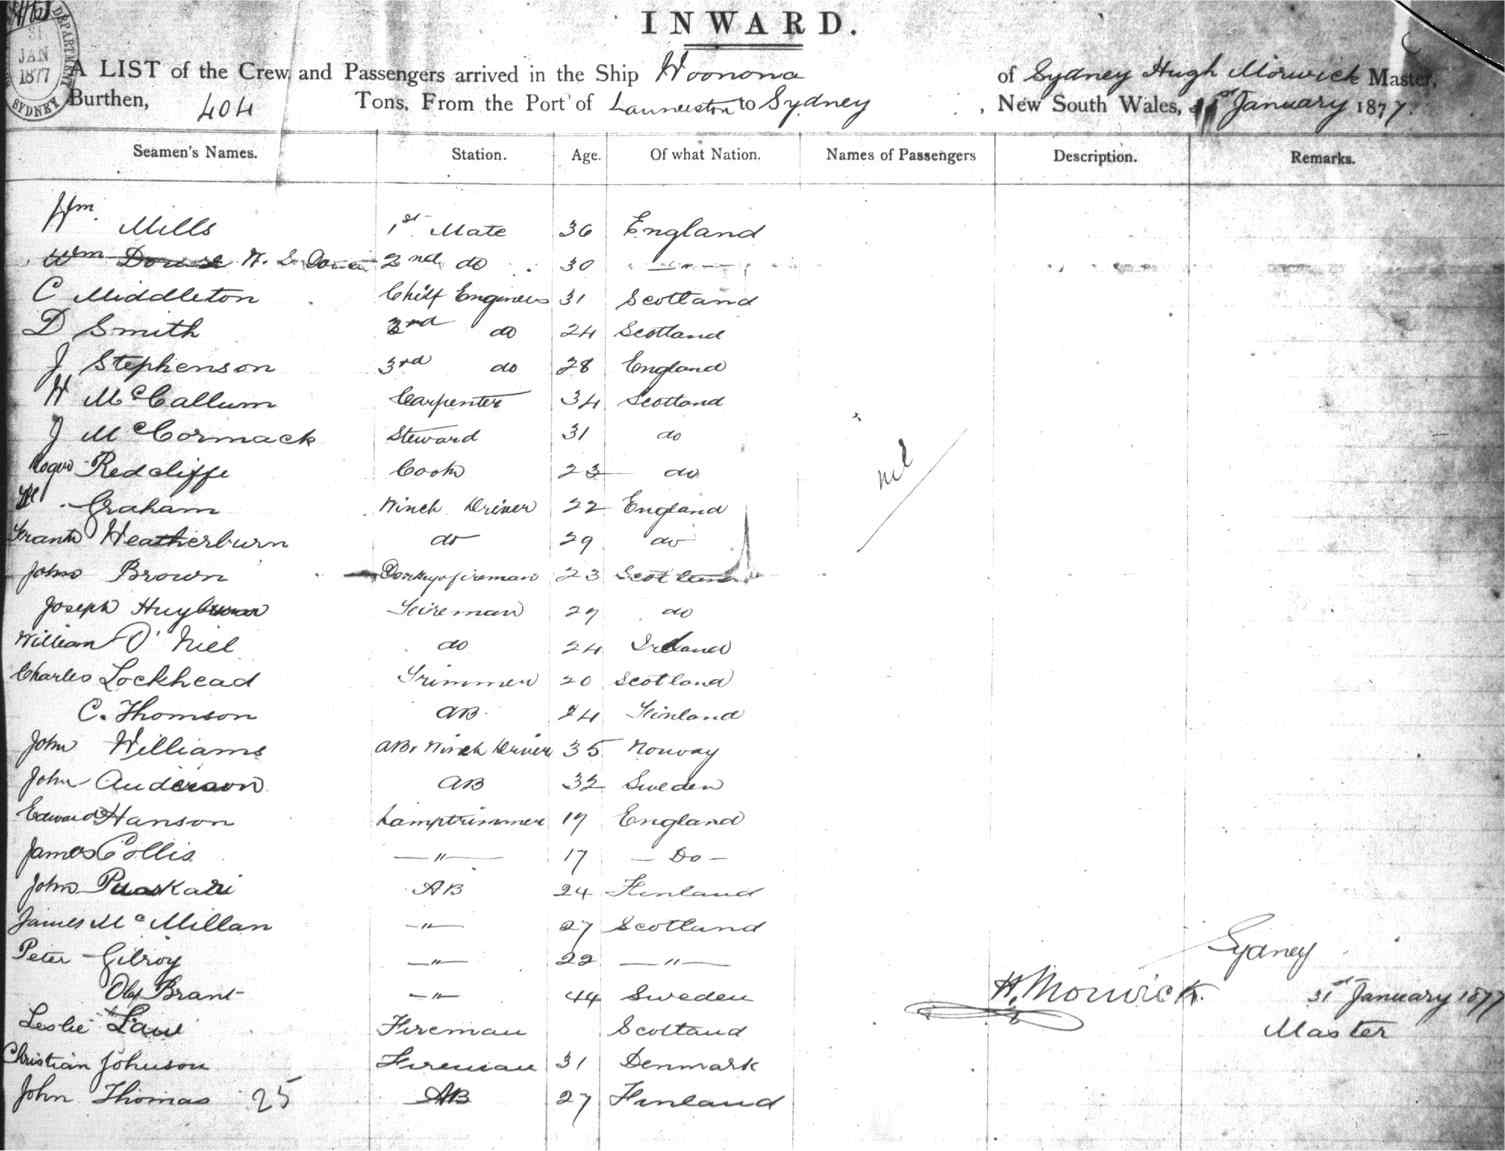 INWARD.
31
JAN
1877
DEPARTMENT
SYDNEY
A LIST of the Crew and Passengers arrived in the Ship Woonona of Sydney Hugh Morwick Master,
Burthen, 404 Tons, From the Port of Launceston to Sydney, New South Wales, January 1877.
Seamen's Names. Station. Age. Of what Nation. Names of Passengers Description. Remarks.
Wm. Mills 1st Mate 36 England
Wm 2nd do 30 — " —
C Middleton Chief Engineer 31 Scotland
D Smith do 24 Scotland
J Stephenson 3rd do 28 England
W McCallum Carpenter 34 Scotland
J McCormack Steward 31 do
Redcliffe Cook 23 do
nil
Graham Winch Driver 22 England
Frank Heatherburn do 29 do
John Brown Donkeyfireman 23 Scotland
Joseph Fireman 29 do
William O'Niel do 24 Ireland
Charles Lockhead Trimmer 20 Scotland
C. Thomson AB. 24 Finland
John Williams AB & Winch Driver 35 Norway
John Anderson AB 32 Sweden
Edward Hanson Lamptrimmer 19 England
James Collis — " — 17 — Do —
John AB 24 Finland
James McMillan — " — 27 Scotland
Peter Gilroy — " — 22 — " —
Sydney
Olof Brant — " — 44 Sweden
H. Morwick. 31st January 1877
Leslie Law Fireman Scotland
Master
Christian Johnson Fireman 31 Denmark
John Thomas 25 AB 27 Finland